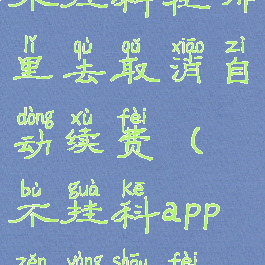 lǐ qù qǔ xiāo zì
里去取消自
dòng xù fèi
动续费(
bù guà kē
不挂科app
zěn yàng shōu fèi